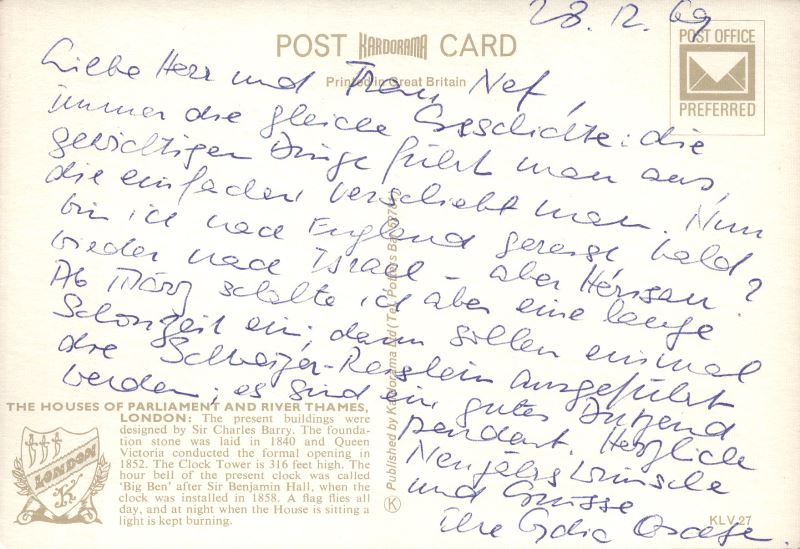 28. 12. 69
POST KARDORAMA CARD
Printed in Great Britain
POST OFFICE
PREFERRED
Liebe Herr und Frau Nef,
immer die gleiche Geschichte: die
gewichtigen Dinge führt man aus,
die einfachen verschiebt man. Nun
bin ich nach England gereist, bald
wieder nach Israel – aber Herisau?
Ab März schalte ich aber eine lange
Schonzeit ein; dann sollen einmal
die Schweizer-Reislein ausgeführt
werden; es sind ein gutes Dutzend
pendent. Herzliche
Neujahrswünsche
und Grüsse
Ihre Lydia
Published by Kardorama Ltd
THE HOUSES OF PARLIAMENT AND RIVER THAMES,
LONDON: The present buildings were
designed by Sir Charles Barry. The founda-
tion stone was laid in 1840 and Queen
Victoria conducted the formal opening in
1852. The Clock Tower is 316 feet high. The
hour bell of the present clock was called
'Big Ben' after Sir Benjamin Hall, when the
clock was installed in 1858. A flag flies all
day, and at night when the House is sitting a
light is kept burning.
LONDON
K
KLV 27